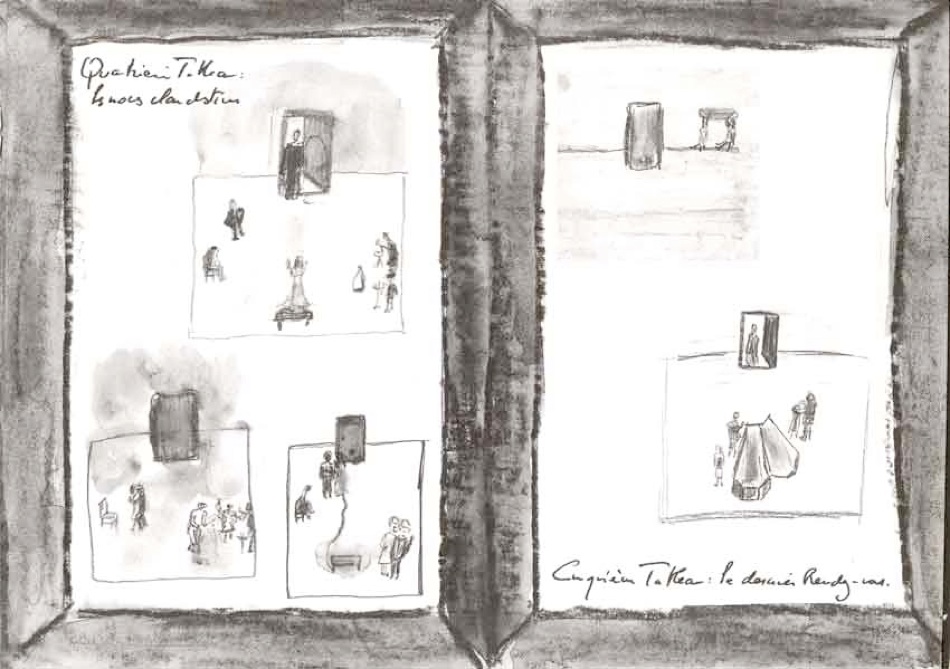 Quatrième Tableau :
les noces clandestines
Cinquième Tableau : le dernier Rendez-vous.